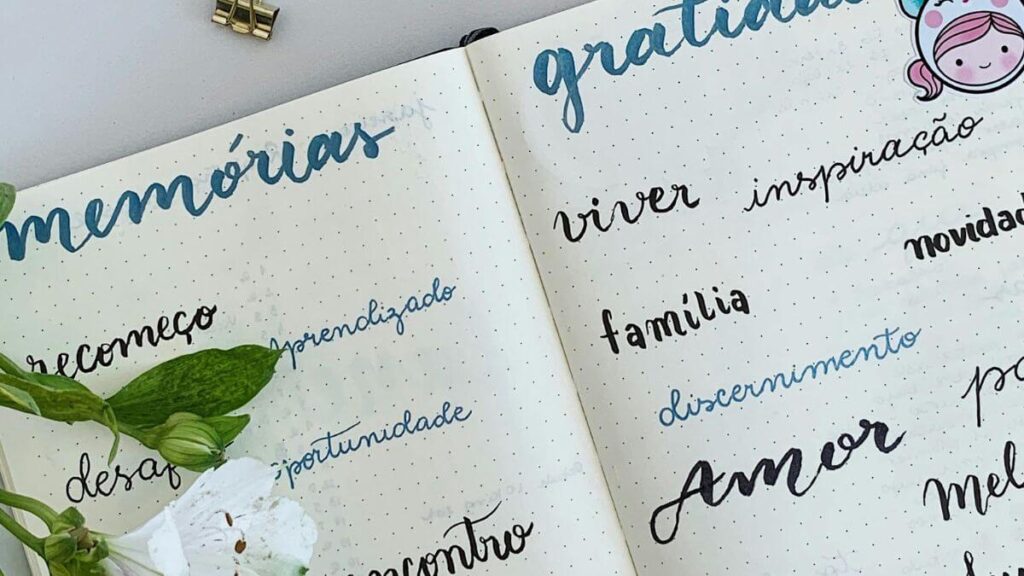 memórias
recomeço
aprendizado
desaf
oportunidade
ncontro
gratida
viver inspiração
novidad
família
discernimento
Amor
Mel